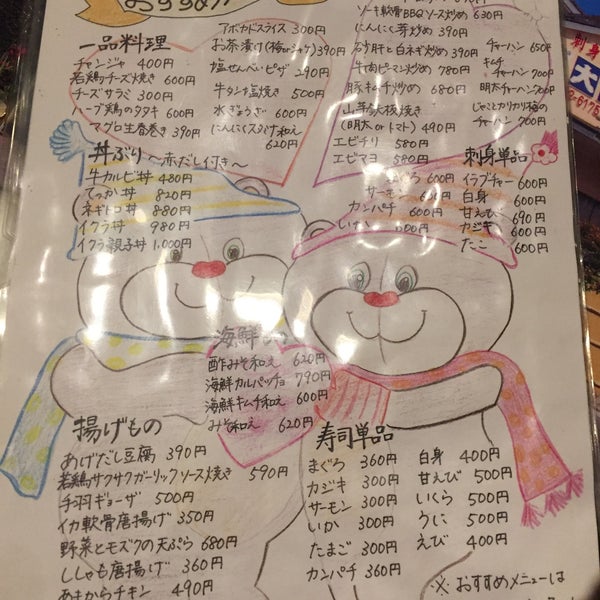 おすすめ
一品料理
チャンジャ 400円
若鶏チーズ焼き 600円
チーズサラミ 300円
ハーブ鶏のタタキ 600円
マグロ生春巻き 390円
アボカドスライス 300円
お茶漬け(梅orシャケ) 390円
塩せんべいピザ 290円
牛タン塩焼き 500円
水ぎょうざ 600円
にんにく
和え
620円
ソーキ軟骨BBQソース炒め 630円
にんにく芽炒め 390円
砂肝と白ネギ炒め 390円
牛肉ピーマン炒め 780円
豚キムチ炒め 680円
山芋鉄板焼き
(明太orトマト) 490円
エビチリ 580円
エビマヨ 580円
チャーハン 650円
キムチ
チャーハン 700円
明太チャーハン
700円
じゃことカリカリ梅の
チャーハン 700円
丼ぶり ～赤だし付き～
牛カルビ丼 480円
てっか丼 820円
ネギトロ丼 880円
イクラ丼 980円
イクラ親子丼 1,000円
刺身単品
まぐろ 600円
サーモン 600円
カンパチ 600円
いか 600円
イラブチャー 600円
白身 600円
甘えび 690円
カジキ 600円
たこ 600円
海鮮
酢みそ和え 620円
海鮮カルパッチョ 790円
海鮮キムチ和え 600円
みそ和え 620円
揚げもの
あげだし豆腐 390円
若鶏サクサクガーリックソース焼き 590円
手羽ギョーザ 500円
イカ軟骨唐揚げ 350円
野菜とモズクの天ぷら 680円
ししゃも唐揚げ 360円
あまからチキン 490円
寿司単品
まぐろ 360円
カジキ 300円
サーモン 300円
いか 300円
たまご 300円
カンパチ 360円
白身 400円
甘えび 500円
いくら 500円
うに 500円
えび 400円
※おすすめメニューは
刺身
大